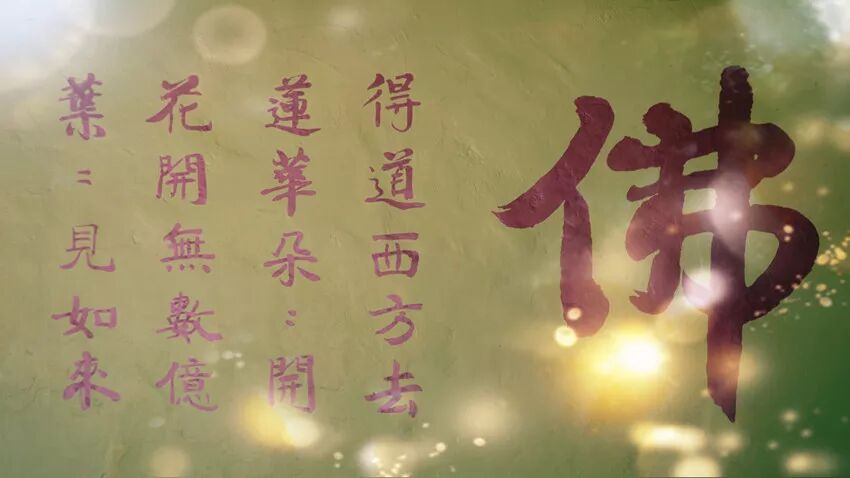 佛
得道西方去
蓮華朵：開
花開無數億
葉：見如來